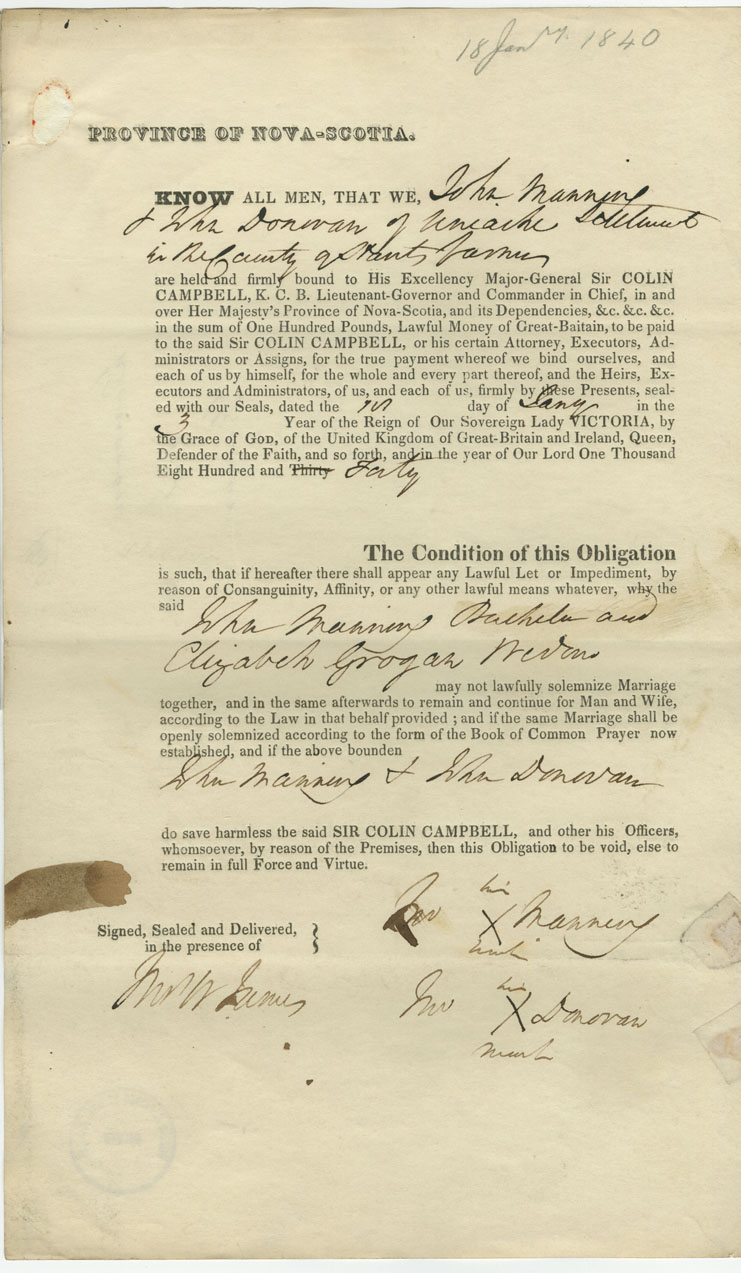 18 Jany 1840
PROVINCE OF NOVA-SCOTIA.
KNOW ALL MEN, THAT WE, John Manning
& John Donovan of Uniacke Settlement
in the County of Hants farmers
are held and firmly bound to His Excellency Major-General Sir COLIN
CAMPBELL, K. C. B. Lieutenant-Governor and Commander in Chief, in and
over Her Majesty's Province of Nova-Scotia, and its Dependencies, &c. &c. &c.
in the sum of One Hundred Pounds, Lawful Money of Great-Baitain, to be paid
to the said Sir COLIN CAMPBELL, or his certain Attorney, Executors, Ad-
ministrators or Assigns, for the true payment whereof we bind ourselves, and
each of us by himself, for the whole and every part thereof, and the Heirs, Ex-
ecutors and Administrators, of us, and each of us, firmly by these Presents, seal-
ed with our Seals, dated the 18 day of Jany in the
3 Year of the Reign of Our Sovereign Lady VICTORIA, by
the Grace of GOD, of the United Kingdom of Great-Britain and Ireland, Queen,
Defender of the Faith, and so forth, and in the year of Our Lord One Thousand
Eight Hundred and Thirty Forty
The Condition of this Obligation
is such, that if hereafter there shall appear any Lawful Let or Impediment, by
reason of Consanguinity, Affinity, or any other lawful means whatever, why the
said
John Manning Bachelor and
Elizabeth Grogan Widow
may not lawfully solemnize Marriage
together, and in the same afterwards to remain and continue for Man and Wife,
according to the Law in that behalf provided ; and if the same Marriage shall be
openly solemnized according to the form of the Book of Common Prayer now
established, and if the above bounden
John Manning & John Donovan
do save harmless the said SIR COLIN CAMPBELL, and other his Officers,
whomsoever, by reason of the Premises, then this Obligation to be void, else to
remain in full Force and Virtue.
his
Jno X Manning
mark
Signed, Sealed and Delivered,
in the presence of
his
Jno X Donovan
mark
W James